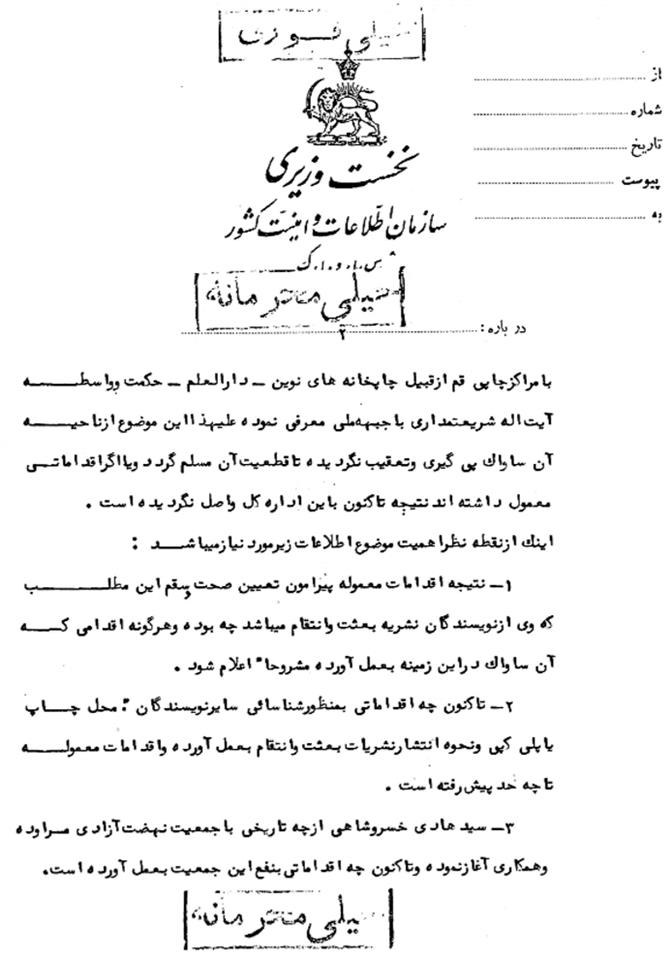 خیلی فوری
از
شماره
تاریخ
پیوست
به
نخست وزیری
سازمان اطلاعات و امنیت کشور
س.ا.و.ا.ک
خیلی محرمانه
در باره :
۲
با مراکز چاپی قم از قبیل چاپخانه های نوین – دارالعلم – حکمت و واسطه
آیت اله شریعتمداری با جبهه ملی معرفی نموده علیهذا این موضوع از ناحیه
آن ساواک پی گیری و تعقیب نگردیده تا قطعیت آن مسلم گردد و یا اگر اقداماتی
معمول داشته اند نتیجه تاکنون باین اداره کل واصل نگردیده است .
اینک از نقطه نظر اهمیت موضوع اطلاعات زیر مورد نیاز میباشد :
۱– نتیجه اقدامات معموله پیرامون تعیین صحت و سقم این مطلب
که وی از نویسندگان نشریه بعثت و انتقام میباشد چه بوده و هرگونه اقدامی که
آن ساواک در این زمینه بعمل آورده مشروحا" اعلام شود .
۲– تاکنون چه اقداماتی بمنظور شناسائی سایر نویسندگان : محل چاپ
یا پلی کپی و نحوه انتشار نشریات بعثت و انتقام بعمل آورده و اقدامات معموله
تا چه حد پیش رفته است .
۳– سید هادی خسروشاهی از چه تاریخی با جمعیت نهضت آزادی مراوده
و همکاری آغاز نموده و تاکنون چه اقداماتی بنفع این جمعیت بعمل آورده است.
خیلی محرمانه